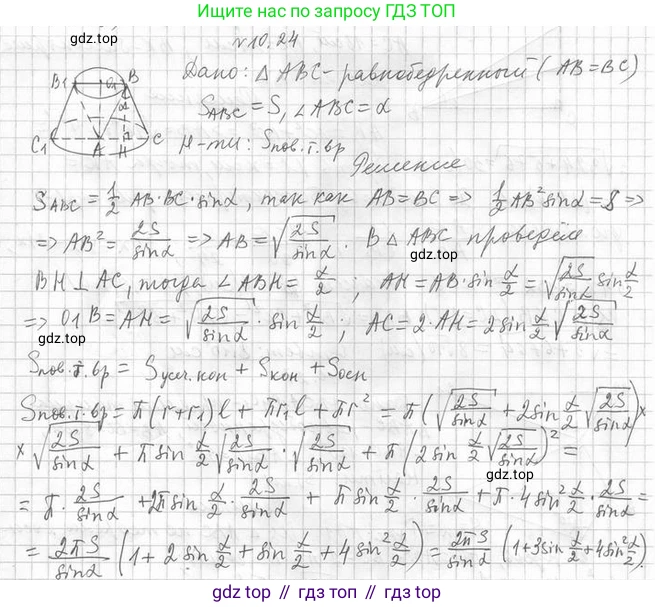 Ищите нас по запросу ГДЗ ТОП
gdz.top
№10.24
Дано: △ ABC - равнобедренный (AB=BC)
S_ABC = S, ∠ABC = α
Н-ти: Sпов.т.вр
Решение
B1 O1 B α
C1 A H C
S_ABC = 1/2 AB·BC·sinα, так как AB=BC => 1/2 AB² sinα = S =>
=> AB² = 2S/sinα => AB = √(2S/sinα). В △ ABC проведём
gdz.top
BH ⊥ AC, тогда ∠ABH = α/2; AH = AB·sin α/2 = √(2S/sinα) sin α/2
=> O1B = AH = √(2S/sinα) · sin α/2; AC = 2·AH = 2 sin α/2 √(2S/sinα)
Sпов.т.вр = Sусеч.кон + Sкон + Sосн
gdz.top
Sпов.т.вр = π(r+r1)l + πr1l + πr² = π(√(2S/sinα) + 2sin α/2 √(2S/sinα))×
× √(2S/sinα) + π sin α/2 √(2S/sinα) · √(2S/sinα) + π(2 sin α/2 √(2S/sinα))² =
gdz.top
= π · 2S/sinα + 2π sin α/2 · 2S/sinα + π sin α/2 · 2S/sinα + π · 4 sin² α/2 · 2S/sinα =
= 2πS/sinα (1 + 2 sin α/2 + sin α/2 + 4 sin² α/2) = 2πS/sinα (1 + 3sin α/2 + 4sin² α/2).
gdz.top // gdz.top // gdz.top